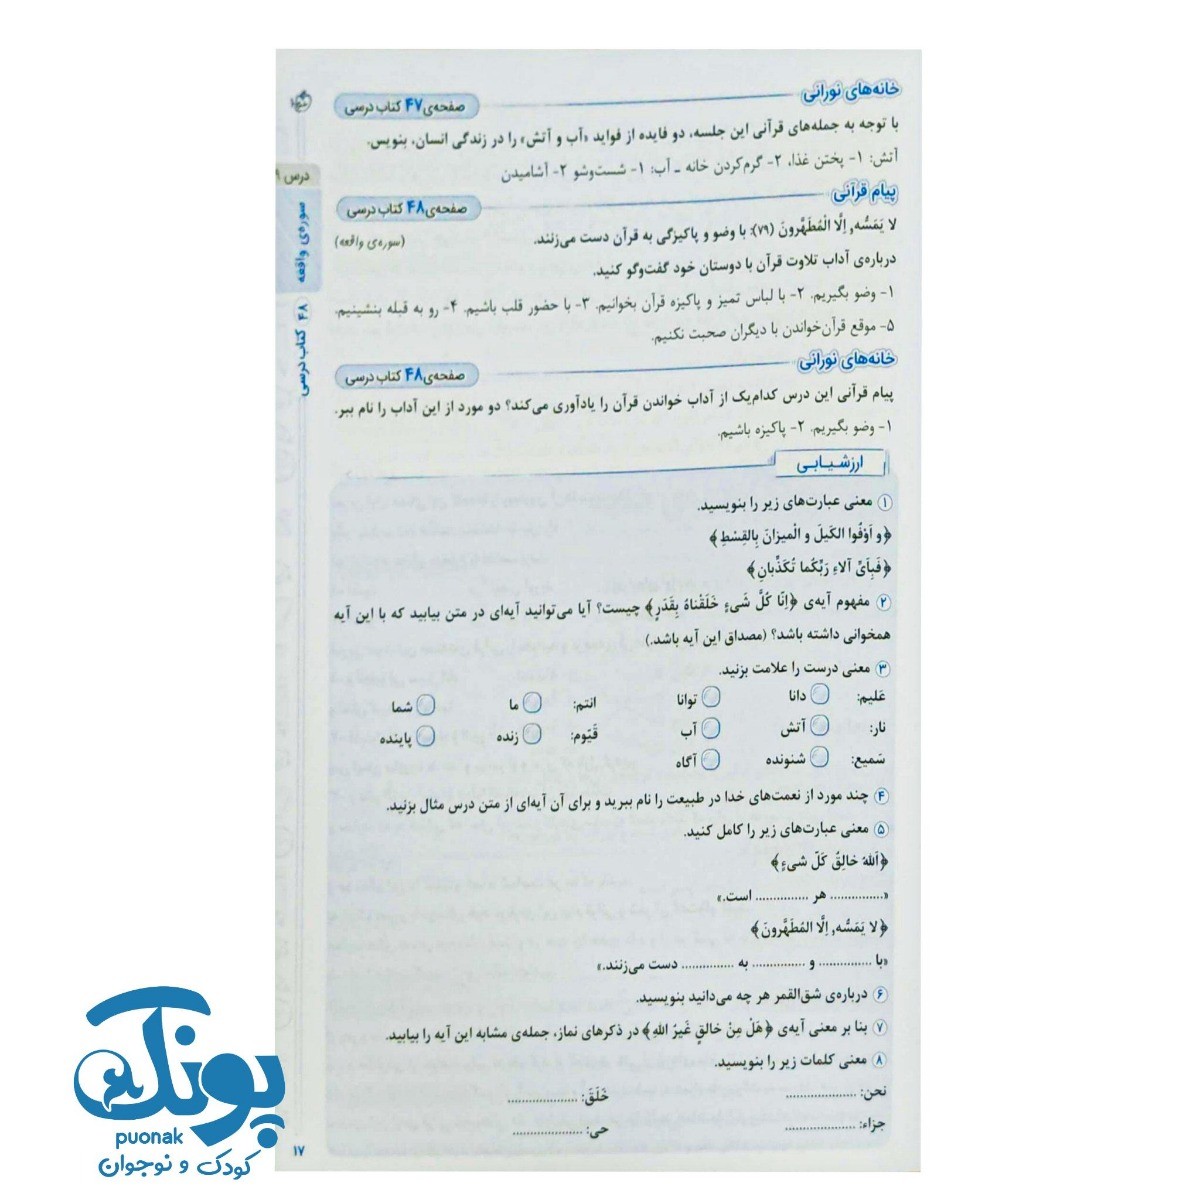 خانه‌های نورانی
صفحه‌ی ۴۷ کتاب درسی
با توجه به جمله‌های قرآنی این جلسه، دو فایده از فواید «آب و آتش» را در زندگی انسان، بنویس.
آتش: ۱- پختن غذا، ۲- گرم‌کردن خانه ـ آب: ۱- شست‌وشو ۲- آشامیدن
پیام قرآنی
صفحه‌ی ۴۸ کتاب درسی
لا یَمَسُّه, اِلَّا الْمُطَهَّرونَ (۷۹): با وضو و پاکیزگی به قرآن دست می‌زنند. (سوره‌ی واقعه)
درباره‌ی آداب تلاوت قرآن با دوستان خود گفت‌وگو کنید.
۱- وضو بگیریم. ۲- با لباس تمیز و پاکیزه قرآن بخوانیم. ۳- با حضور قلب باشیم. ۴- رو به قبله بنشینیم.
۵- موقع قرآن‌خواندن با دیگران صحبت نکنیم.
خانه‌های نورانی
صفحه‌ی ۴۸ کتاب درسی
پیام قرآنی این درس کدام‌یک از آداب خواندن قرآن را یادآوری می‌کند؟ دو مورد از این آداب را نام ببر.
۱- وضو بگیریم. ۲- پاکیزه باشیم.
ارزشیابی
۱ معنی عبارت‌های زیر را بنویسید.
﴿و اَوْفُوا الکَیلَ و الْمیزانَ بِالقِسْطِ﴾
﴿فَبِاَیِّ آلاءِ رَبِّکُما تُکَذِّبانِ﴾
۲ مفهوم آیه‌ی ﴿اِنّا کُلَّ شَیءٍ خَلَقْناهُ بِقَدَرٍ﴾ چیست؟ آیا می‌توانید آیه‌ای در متن بیابید که با این آیه
همخوانی داشته باشد؟ (مصداق این آیه باشد.)
۳ معنی درست را علامت بزنید.
عَلیم: دانا توانا انتم: ما شما
نار: آتش آب قَیّوم: زنده پاینده
سَمیع: شنونده آگاه
۴ چند مورد از نعمت‌های خدا در طبیعت را نام ببرید و برای آن آیه‌ای از متن درس مثال بزنید.
۵ معنی عبارت‌های زیر را کامل کنید.
﴿اَللهُ خالِقُ کُلِّ شیءٍ﴾
«.............. هر .............. است.»
﴿لا یَمَسُّه, اِلَّا المُطَهَّرونَ﴾
«با .............. و .............. به .............. دست می‌زنند.»
۶ درباره‌ی شق‌القمر هر چه می‌دانید بنویسید.
۷ بنا بر معنی آیه‌ی ﴿هَلْ مِنْ خالِقٍ غَیرُ اللهِ﴾ در ذکرهای نماز، جمله‌ی مشابه این آیه را بیابید.
۸ معنی کلمات زیر را بنویسید.
نحن: .................. خَلَقَ: ..................
جزاء: .................. حی: ..................
درس ۹
سوره‌ی واقعه
۴۸ کتاب درسی
۱۷
پونک
puonak
کودک و نوجوان